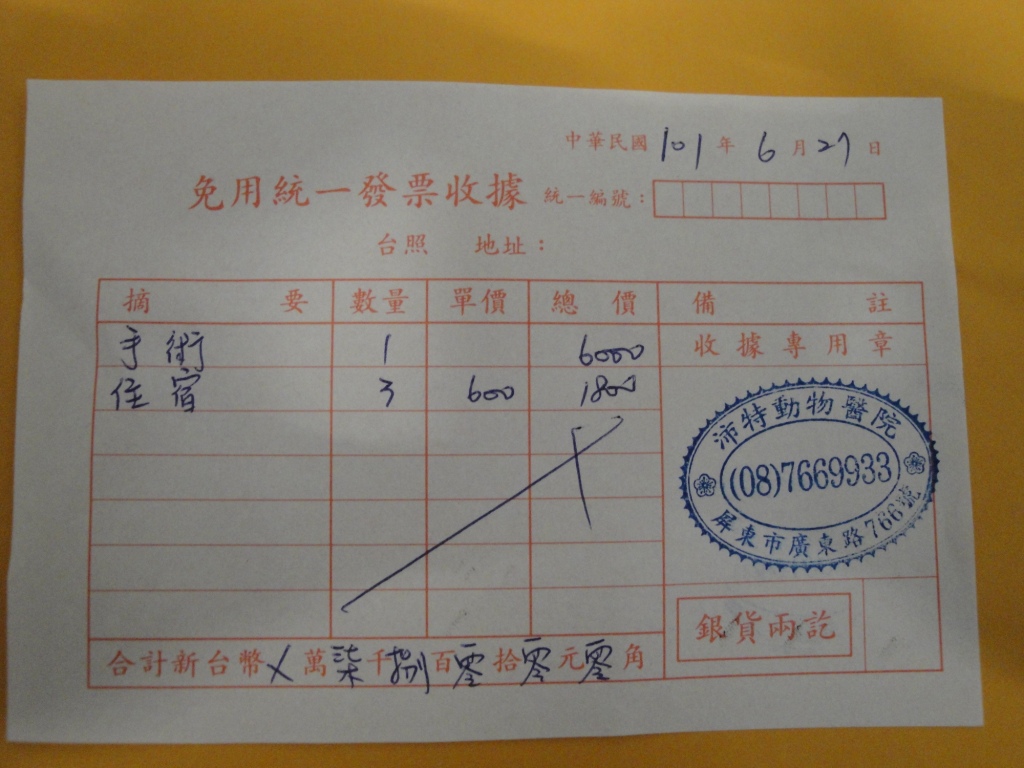 中華民國 101 年 6 月 27 日
免用統一發票收據 統一編號：
台照 地址：
摘要 數量 單價 總價 備註
手術 1 6000 收據專用章
住宿 3 600 1800
沛特動物醫院
(08)7669933
屏東市廣東路766號
銀貨兩訖
合計新台幣 X 萬 柒 千 捌 百 零 拾 零 元 零 角